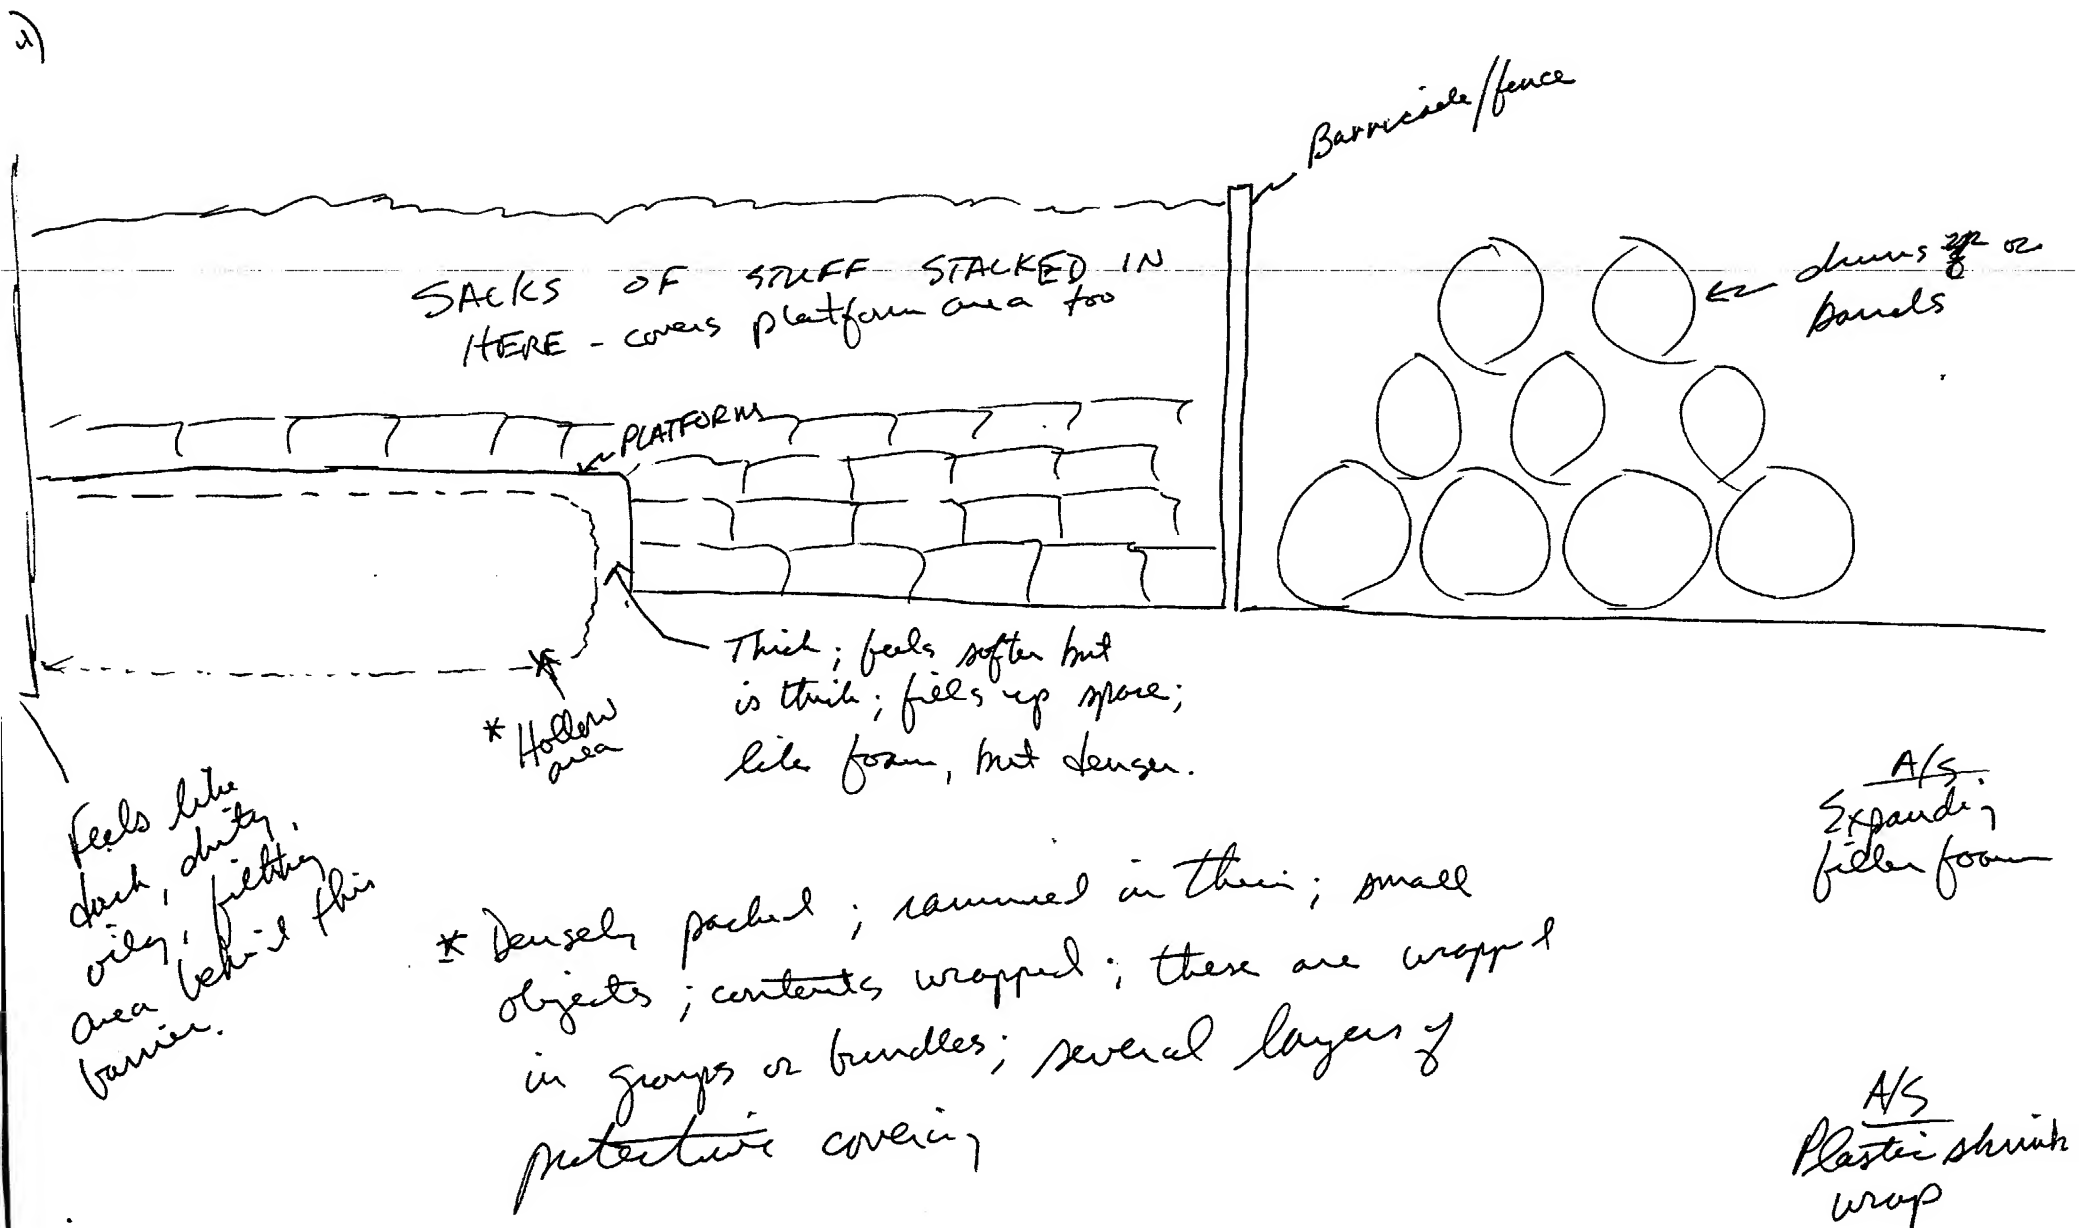 Barricade/fence
SACKS OF STUFF STACKED IN
HERE - covers platform area too
drums or
barrels
PLATFORM
Thick; feels softer but
is thick; fills up space;
like foam, but denser.
* Hollow
area
Feels like
dark, dirty,
oily, filthy
area behind this
barrier.
A/S
Expanding
filler foam
* Densely packed; rammed in there; small
objects; contents wrapped; these are wrapped
in groups or bundles; several layers of
protective covering
A/S
Plastic shrink
wrap